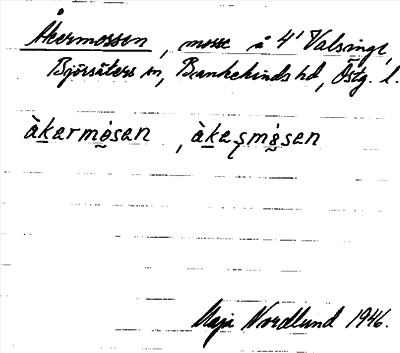 Åkermossen, mosse å 4' Valsinge,
Björsäters sn, Bankekinds hd, Östg. l.
àkarmòsan, àkaʂmòsan
Maja Nordlund 1946.